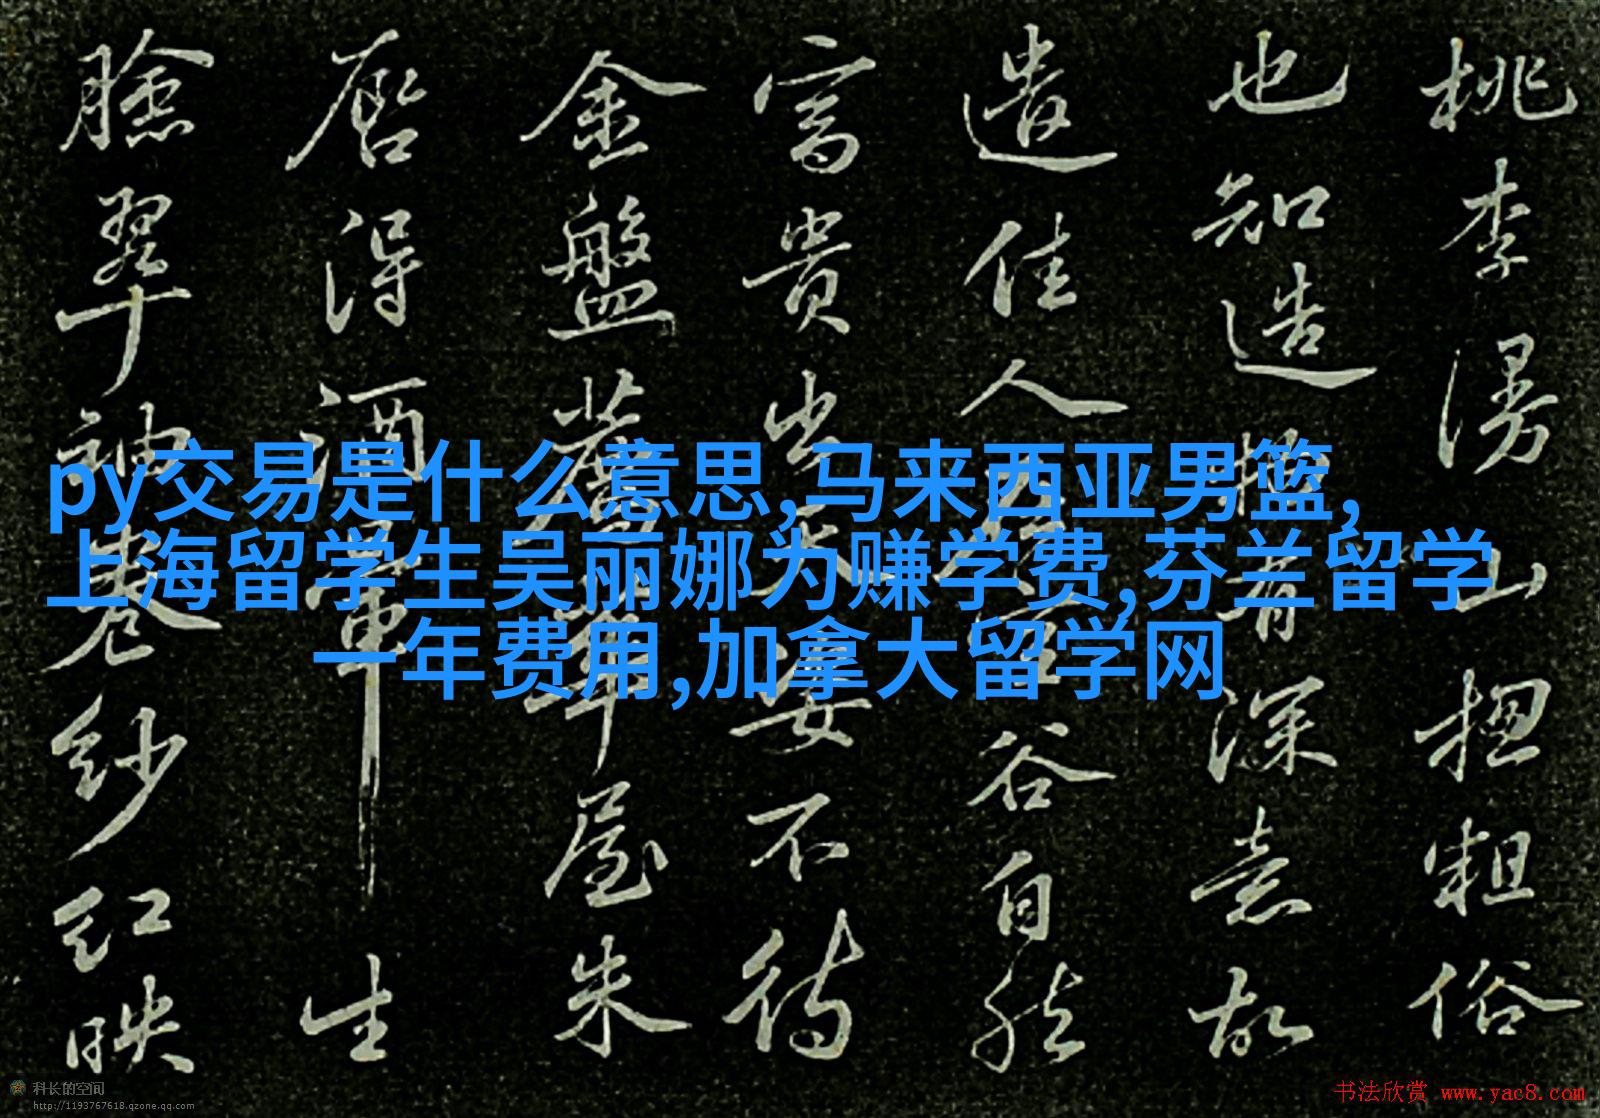 py交易是什么意思,马来西亚男篮,
上海留学生吴丽娜为赚学费,芬兰留学
一年费用,加拿大留学网
桃李漫山揔粗俗
也知造物有深意故
遣佳人在空谷自然
富貴出天姿不待
金盤薦華屋朱
唇得酒暈生
臉翠袖卷紗紅映
科长的空间
http://1193767618.qzone.qq.com
书法欣赏 www.yac8.com